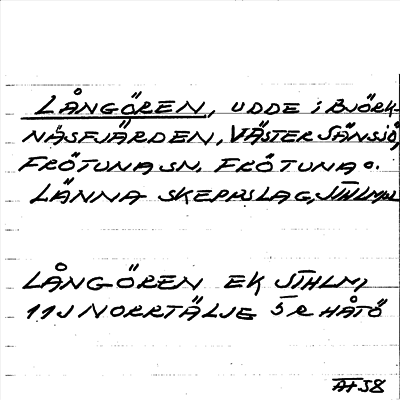 LÅNGÖREN, UDDE i BJÖRK-
NÄSFJÄRDEN, VÄSTERSÄNSJÖ,
FRÖTUNA SN. FRÖTUNA O.
LÄNNA SKEPPSLAG, STHLM
LÅNGÖREN EK STHLM,
11J NORRTÄLJE 5R HÅTÖ
AH 58